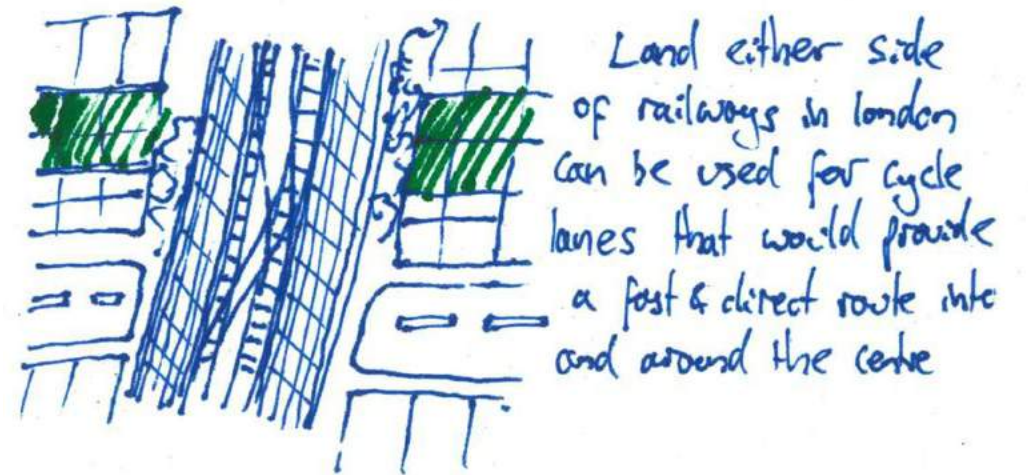 Land either side
of railways in london
can be used for cycle
lanes that would provide
a fast & direct route into
and around the centre